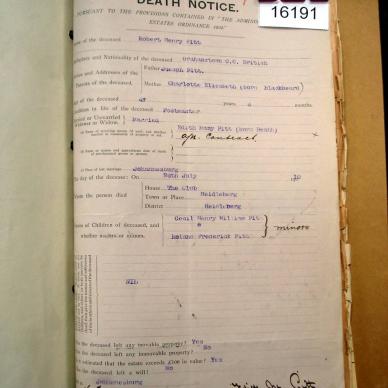 16191
DEATH NOTICE.
PURSUANT TO THE PROVISIONS CONTAINED IN "THE ADMINIS
ESTATES ORDINANCE
of the deceased Robert Henry Pitt
and Nationality of the deceased C.C. British
Names and Addresses of the Father Joseph Pitt.
Parents of the deceased. Mother Charlotte Elizabeth (born Blackbeard)
of the deceased years months
in life of the deceased Postmaster
Married or Unmarried Married
Widower or Widow.
Edith Mary Pitt (born Heath)
Place of last marriage Johannesburg
The day of the decease: On July 10
House The Club
Where the person died Town or Place Heidelberg
District Heidelberg
Names of Children of deceased, and Cecil Henry William Pitt
whether majors or minors. Roland Frederick Pitt minors
NIL
the deceased left any movable property? Yes
the deceased left any immovable property? No
is it estimated that the estate exceeds in value? Yes
the deceased left a will? No
Johannesburg